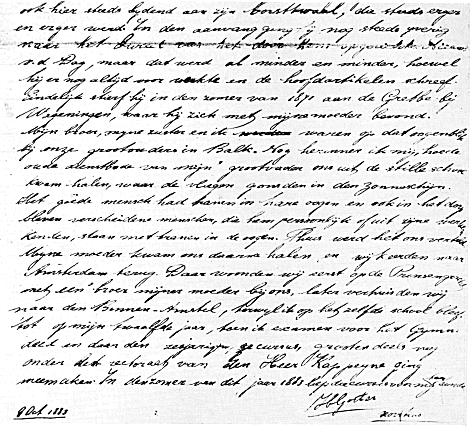 ook hier steeds lijdend aan zijn borstkwaal, die steeds erger
en erger werd. In den aanvang ging hij nog steeds ijverig
naar het Bureel van het door hem opgewekte Nieuws
v.d. Dag, maar dat werd al minder en minder, hoewel
hij er nog altijd voor werkte en de hoofdartikelen schreef.
Eindelijk stierf hij in den zomer van 1871 aan de Grebbe bij
Wageningen, waar hij zich met mijne moeder bevond.
Mijn broer, mijne zuster en ik waren op dat oogenblik
bij onze grootouders in Balk. Nog herinner ik mij, hoe de
oude dienstbode van mijn grootvader ons uit de stille school
kwam halen, waar de vliegen gonsden in den zonneschijn.
Het goede mensch had tranen in hare oogen en ook in het dorp
bleven verscheidene menschen, die hem persoonlijk of uit zijne werken
kenden, staan met tranen in de oogen. Thuis werd het ons verteld
Mijne moeder kwam ons daarna halen en wij keerden naar
Amsterdam terug. Daar woonden wij eerst op de Prinsengracht
met een broer mijner moeder bij ons, later verhuisden wij
naar den Binnen-Amstel, terwijl ik op het zelfde school bleef
tot op mijn twaalfde jaar, toen ik examen voor het Gymn.
deed en daar den zesjarigen cursus, grootendeels nog
onder het rectoraat van den Heer Kappeyne ging
meemaken. In den zomer van dit jaar 1883 liep deze cursus voor mij ten einde
8 Oct. 1883